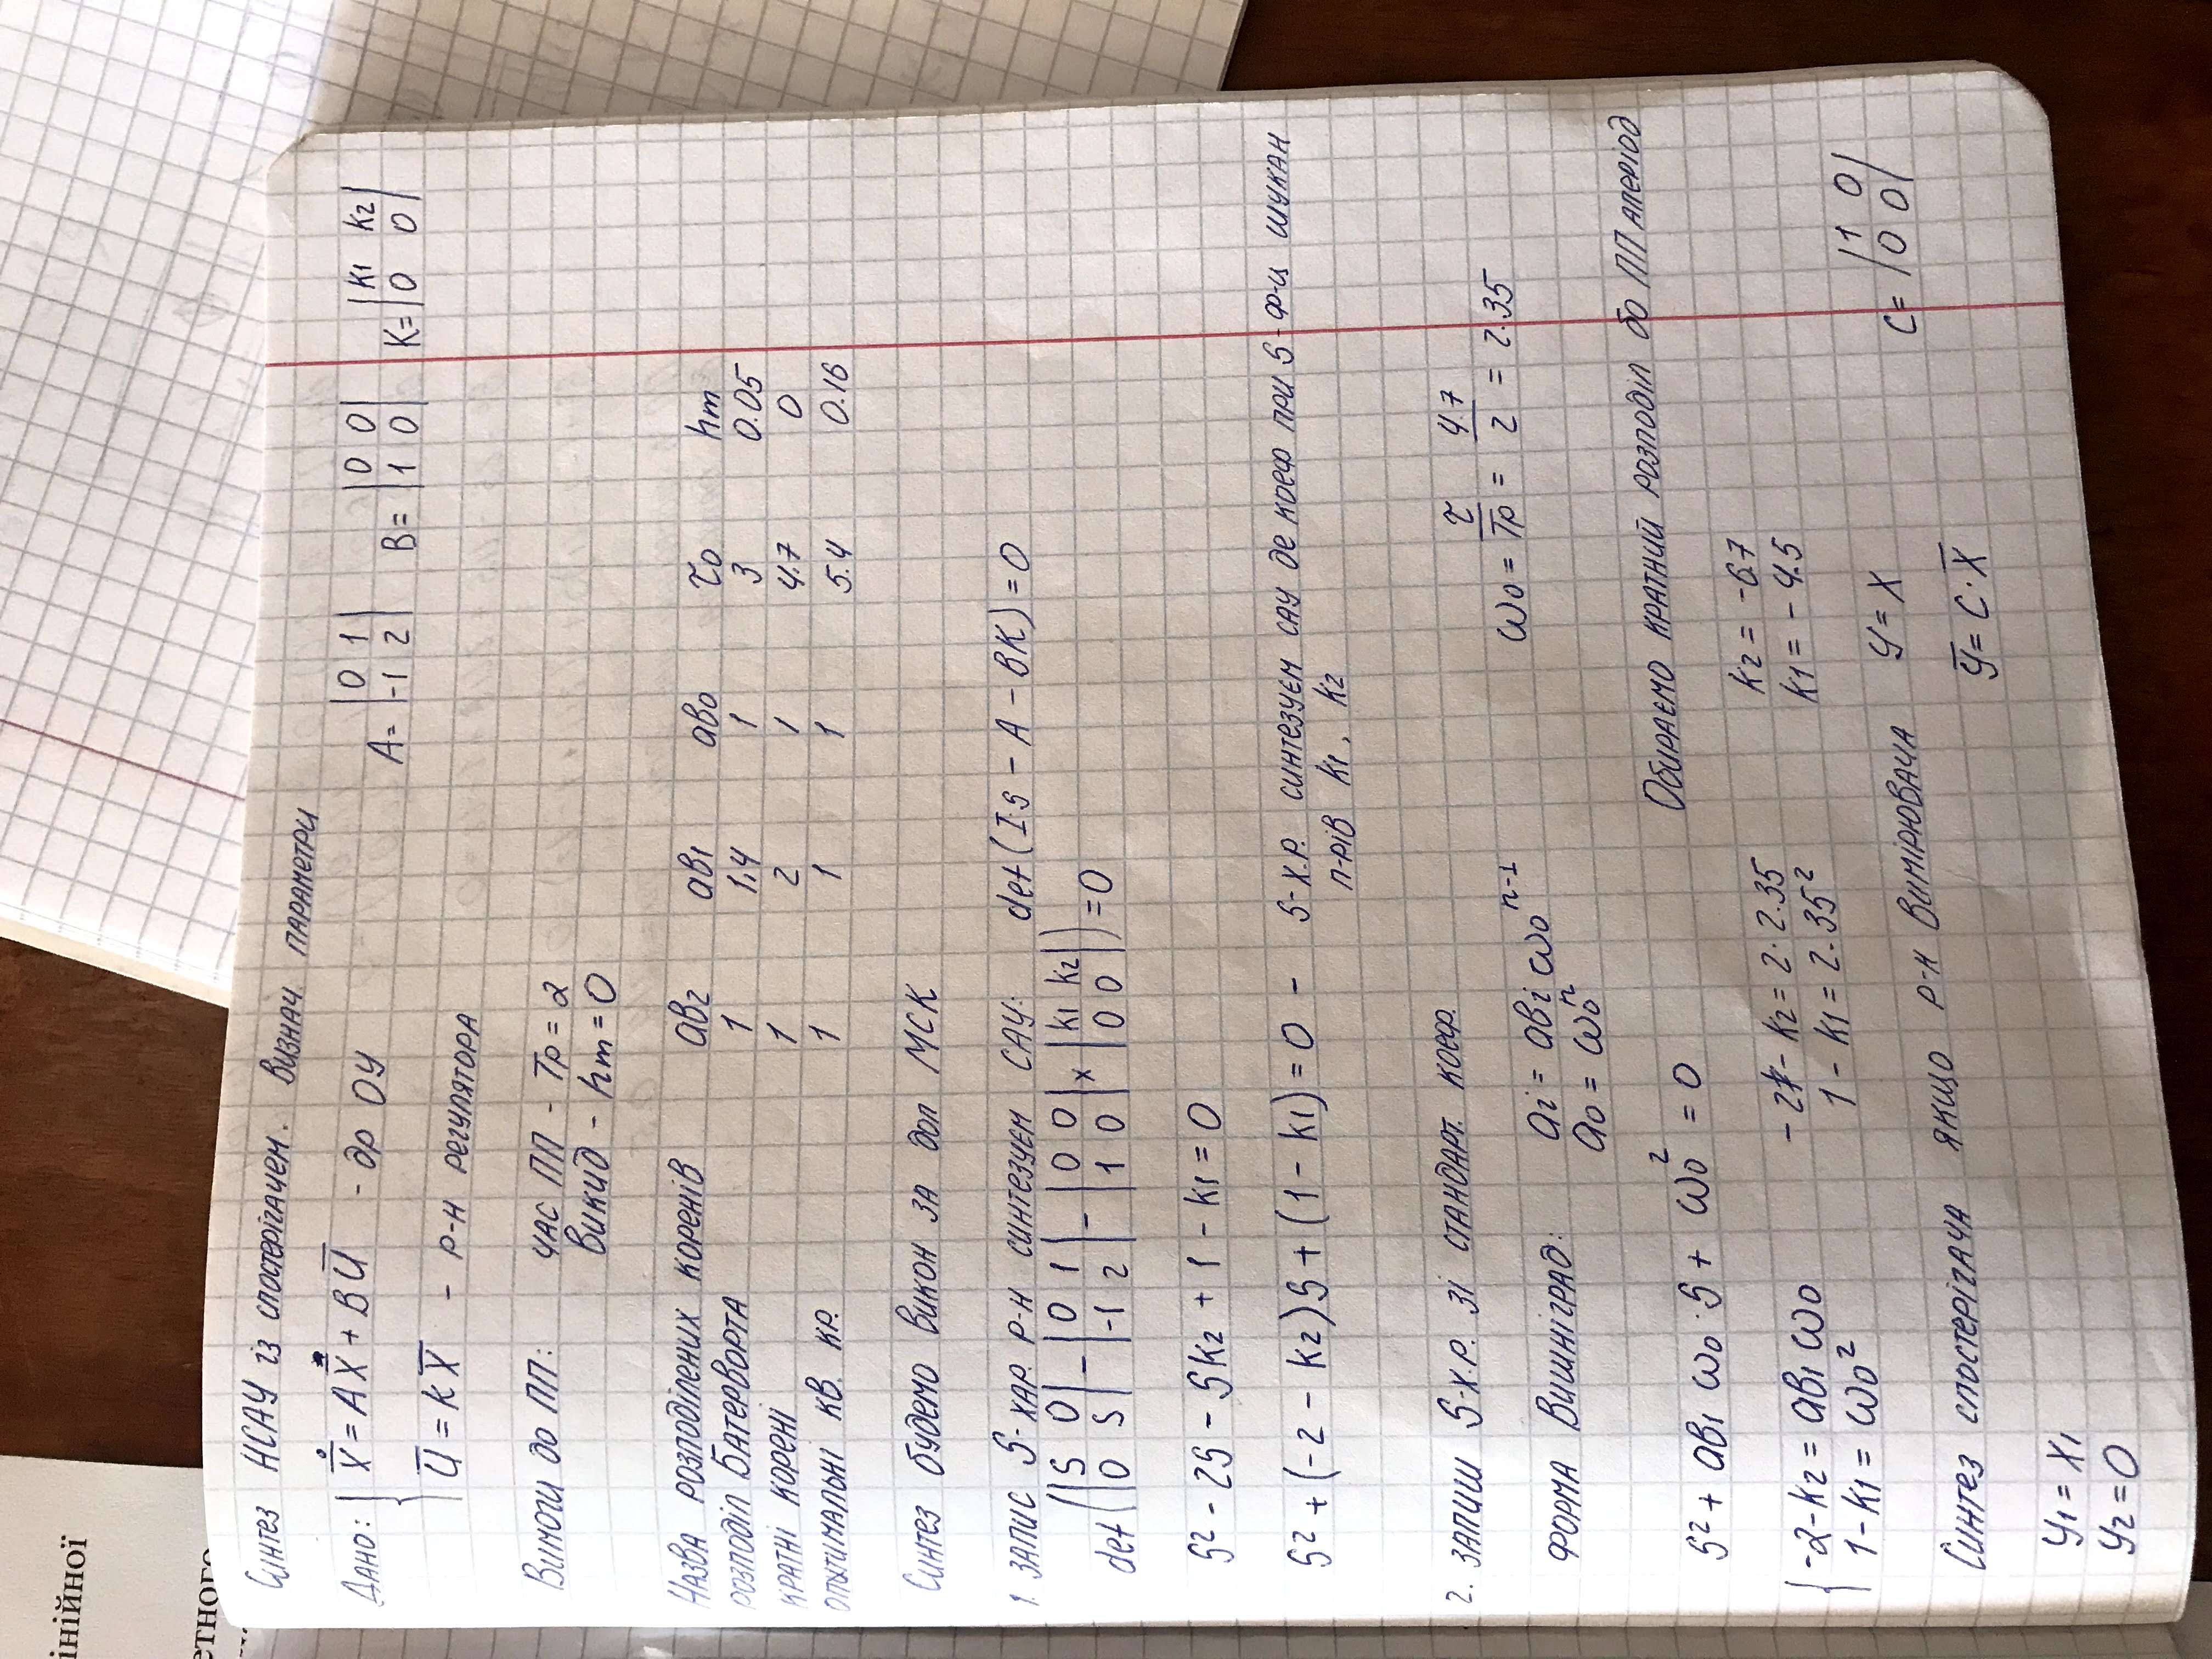 інійної
етного
Синтез НСАУ із спостерігачем. Визнач. параметри
Дано: { Ẋ = A X + B U - др ОУ A= |0 1| B= |0 0| K= |k1 k2|
|-1 2| |1 0| |0 0|
U = K X - р-н регулятора
Вимоги до ПП: час ПП - Tp = 2
викид - hm = 0
Назва розподілених коренів ав2 ав1 ав0 τ0 hm
розподіл Батерворта 1 1,4 1 3 0.05
кратні корені 1 2 1 4.7 0
оптимальні кв. кр. 1 1 1 5.4 0.16
Синтез будемо викон за доп МСК
1. запис S-хар. р-н синтезуєм САУ: det(I·s - A - BK) = 0
det(|S 0| - |0 1| - |0 0| × |k1 k2|) = 0
|0 S| |-1 2| |1 0| |0 0|
S² - 2S - Sk2 + 1 - k1 = 0
S² + (-2 - k2)S + (1 - k1) = 0 - S-х.р. синтезуєм САУ де коеф при S-ф-ц шукан
п-рів k1, k2
2. запиш S-х.р. зі стандарт. коеф.
ω0 = τ/Tp = 4.7/2 = 2.35
форма Вишніград: ai = авi ω0^n-1
a0 = ω0^n
Обираємо кратний розподіл бо ПП аперіод
S² + ав1 ω0·S + ω0² = 0
{ -2-k2 = ав1 ω0 -2 - k2 = 2·2.35 k2 = -6.7
1-k1 = ω0² 1 - k1 = 2.35² k1 = -4.5
Синтез спостерігача якщо р-н вимірювача y = x C= |1 0|
|0 0|
y = C·X
y1 = x1
y2 = 0